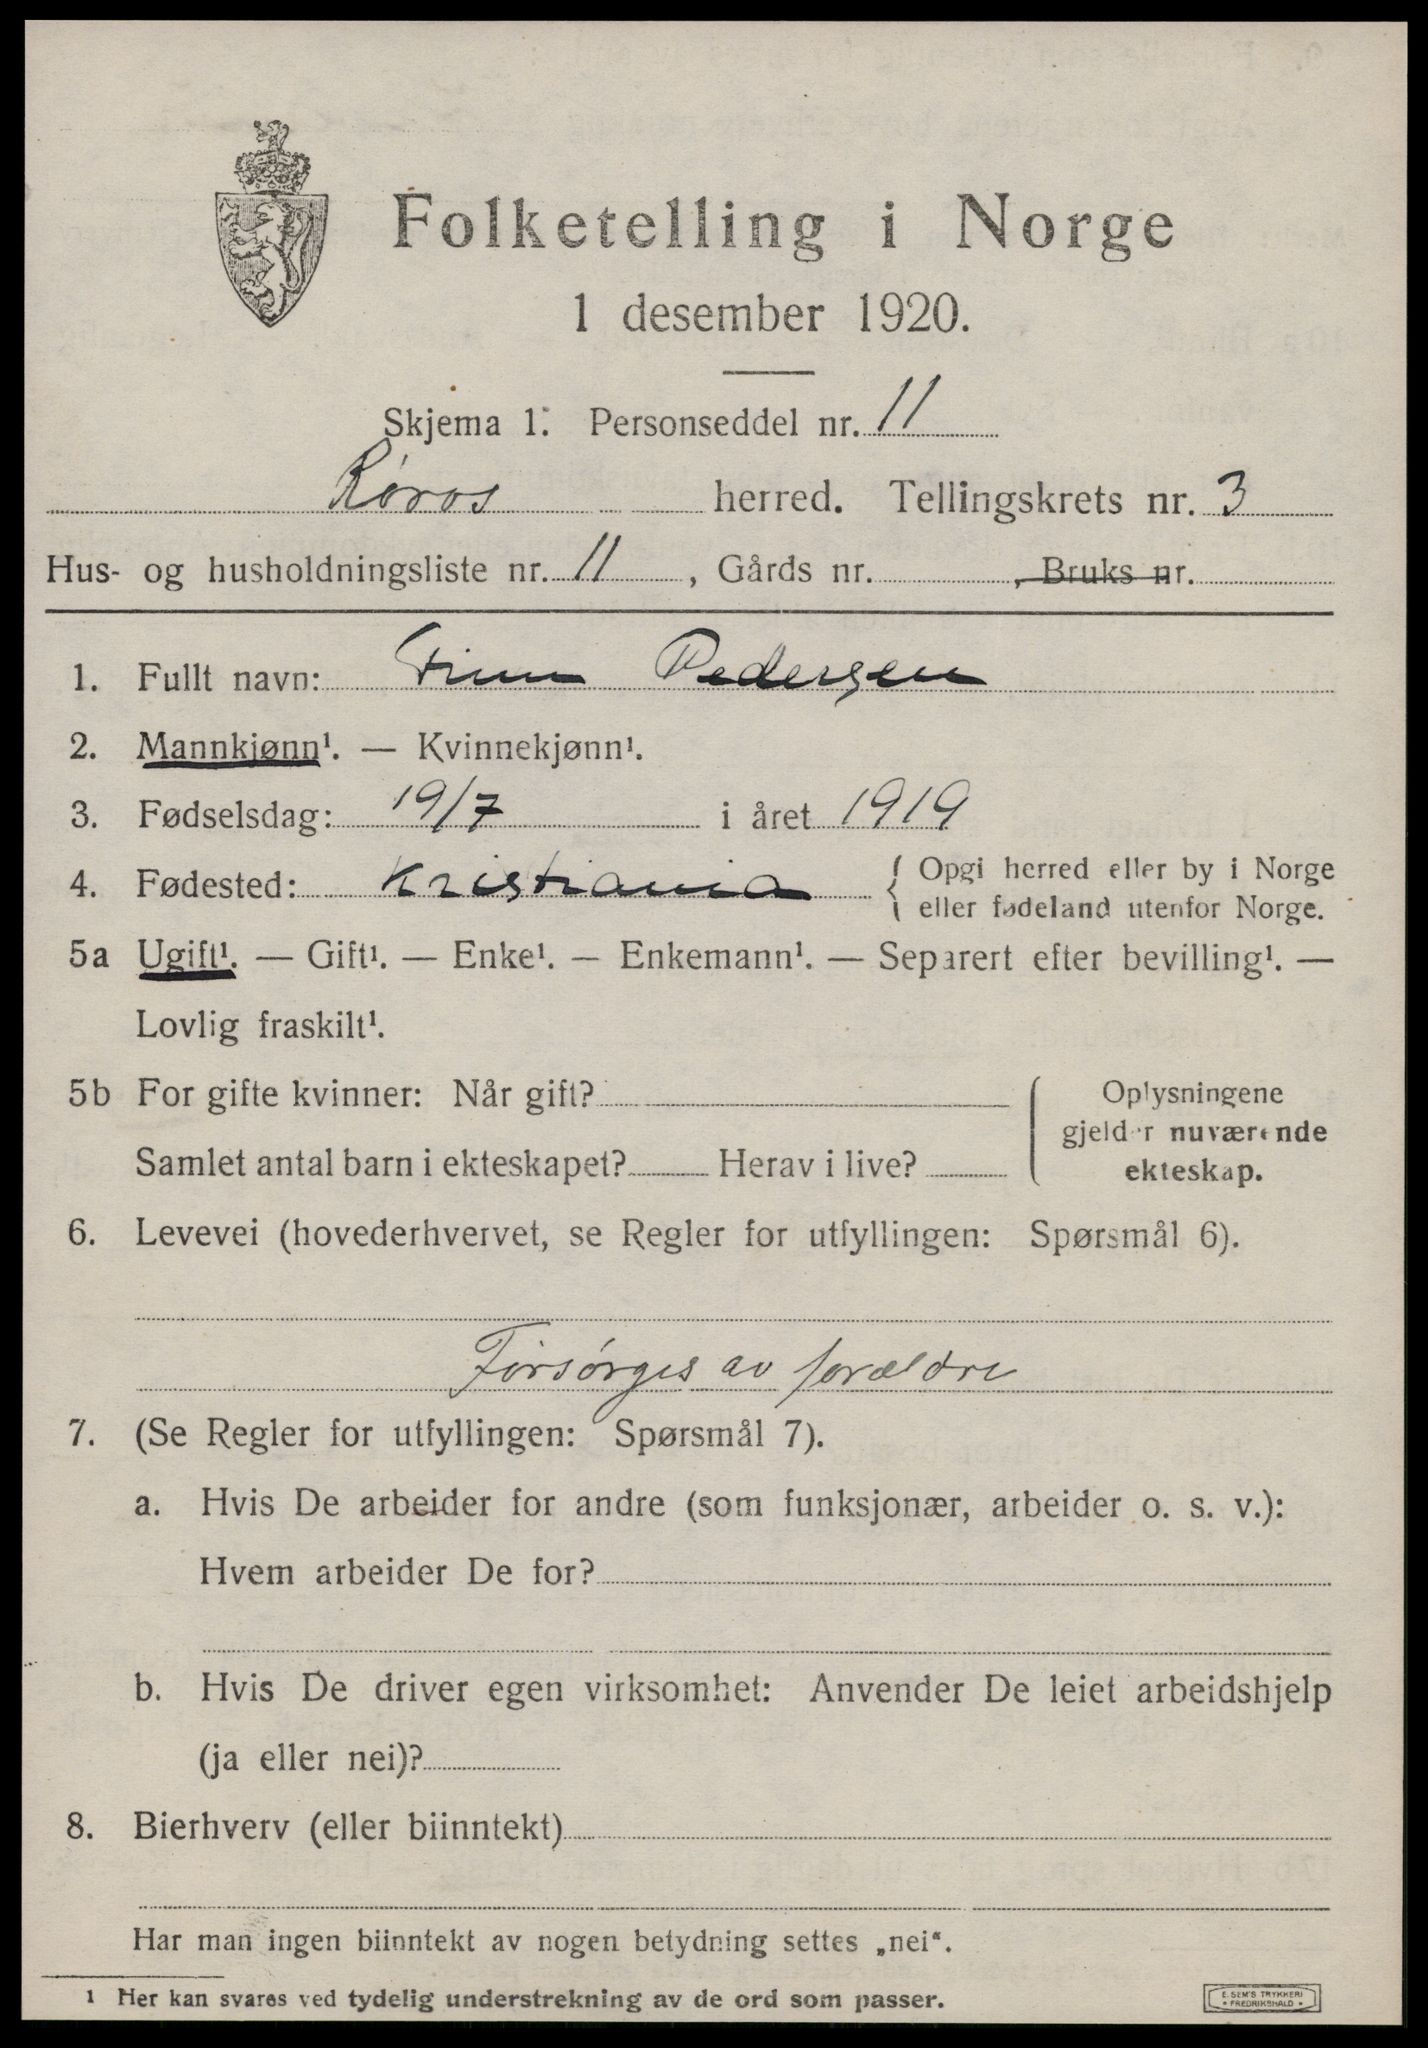 Folketelling i Norge
1 desember 1920.
Skjema 1. Personseddel nr. 11
Røros herred. Tellingskrets nr. 3
Hus- og husholdningsliste nr. 11, Gårds nr. , Bruks nr.
1. Fullt navn: Finn Pedersen
2. Mannkjønn¹. — Kvinnekjønn¹.
3. Fødselsdag: 19/7 i året 1919
4. Fødested: Kristiania { Opgi herred eller by i Norge
eller fødeland utenfor Norge.
5a Ugift¹. — Gift¹. — Enke¹. — Enkemann¹. — Separert efter bevilling¹. —
Lovlig fraskilt¹.
5b For gifte kvinner: Når gift?
Samlet antal barn i ekteskapet? Herav i live?
Oplysningene
gjelder nuværende
ekteskap.
6. Levevei (hovederhvervet, se Regler for utfyllingen: Spørsmål 6).
Forsørges av forældre
7. (Se Regler for utfyllingen: Spørsmål 7).
a. Hvis De arbeider for andre (som funksjonær, arbeider o. s. v.):
Hvem arbeider De for?
b. Hvis De driver egen virksomhet: Anvender De leiet arbeidshjelp
(ja eller nei)?
8. Bierhverv (eller biinntekt)
Har man ingen biinntekt av nogen betydning settes „nei“.
1 Her kan svares ved tydelig understrekning av de ord som passer.
E. SEM'S TRYKKERI
FREDRIKSHALD